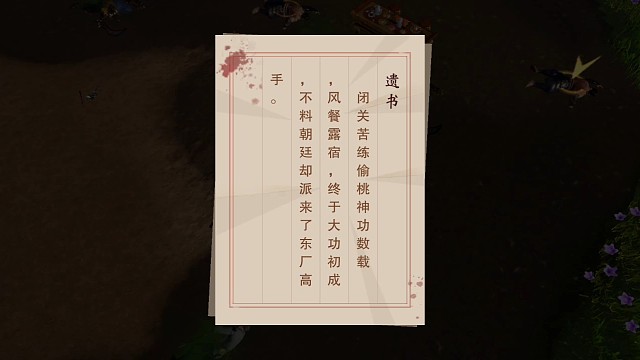 遗书
闭关苦练偷桃神功数载
，风餐露宿，终于大功初成
，不料朝廷却派来了东厂高
手。